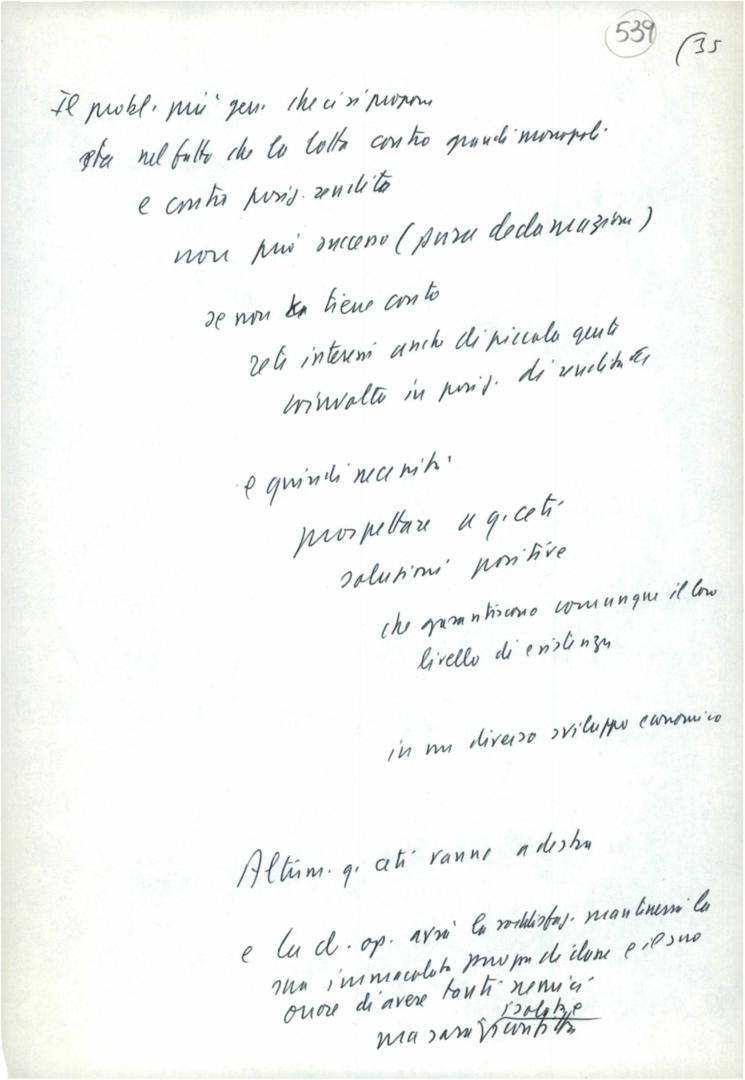 539 (35
Il probl. più gen. che ci si propone
sta nel fatto che la lotta contro grandi monopoli
e contro posiz. rendita
non può successo (pura declamazione)
se non tiene conto
reti interessi anche di piccola gente
coinvolta in posiz. di rendita
e quindi necessità
prospettare a q. ceti
soluzioni positive
che garantiscono comunque il loro
livello di esistenza
in un diverso sviluppo economico
Altrim. q. ceti vanno a destra
e la cl. op. avrà la soddisfaz. mantenersi la
sua immacolata purezza di classe e il suo
onore di avere tanti nemici
isolata e
ma sarà sconfitta